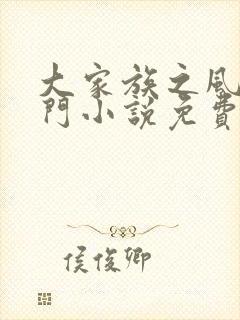 大家族之風
門小說免費
侯俊卿